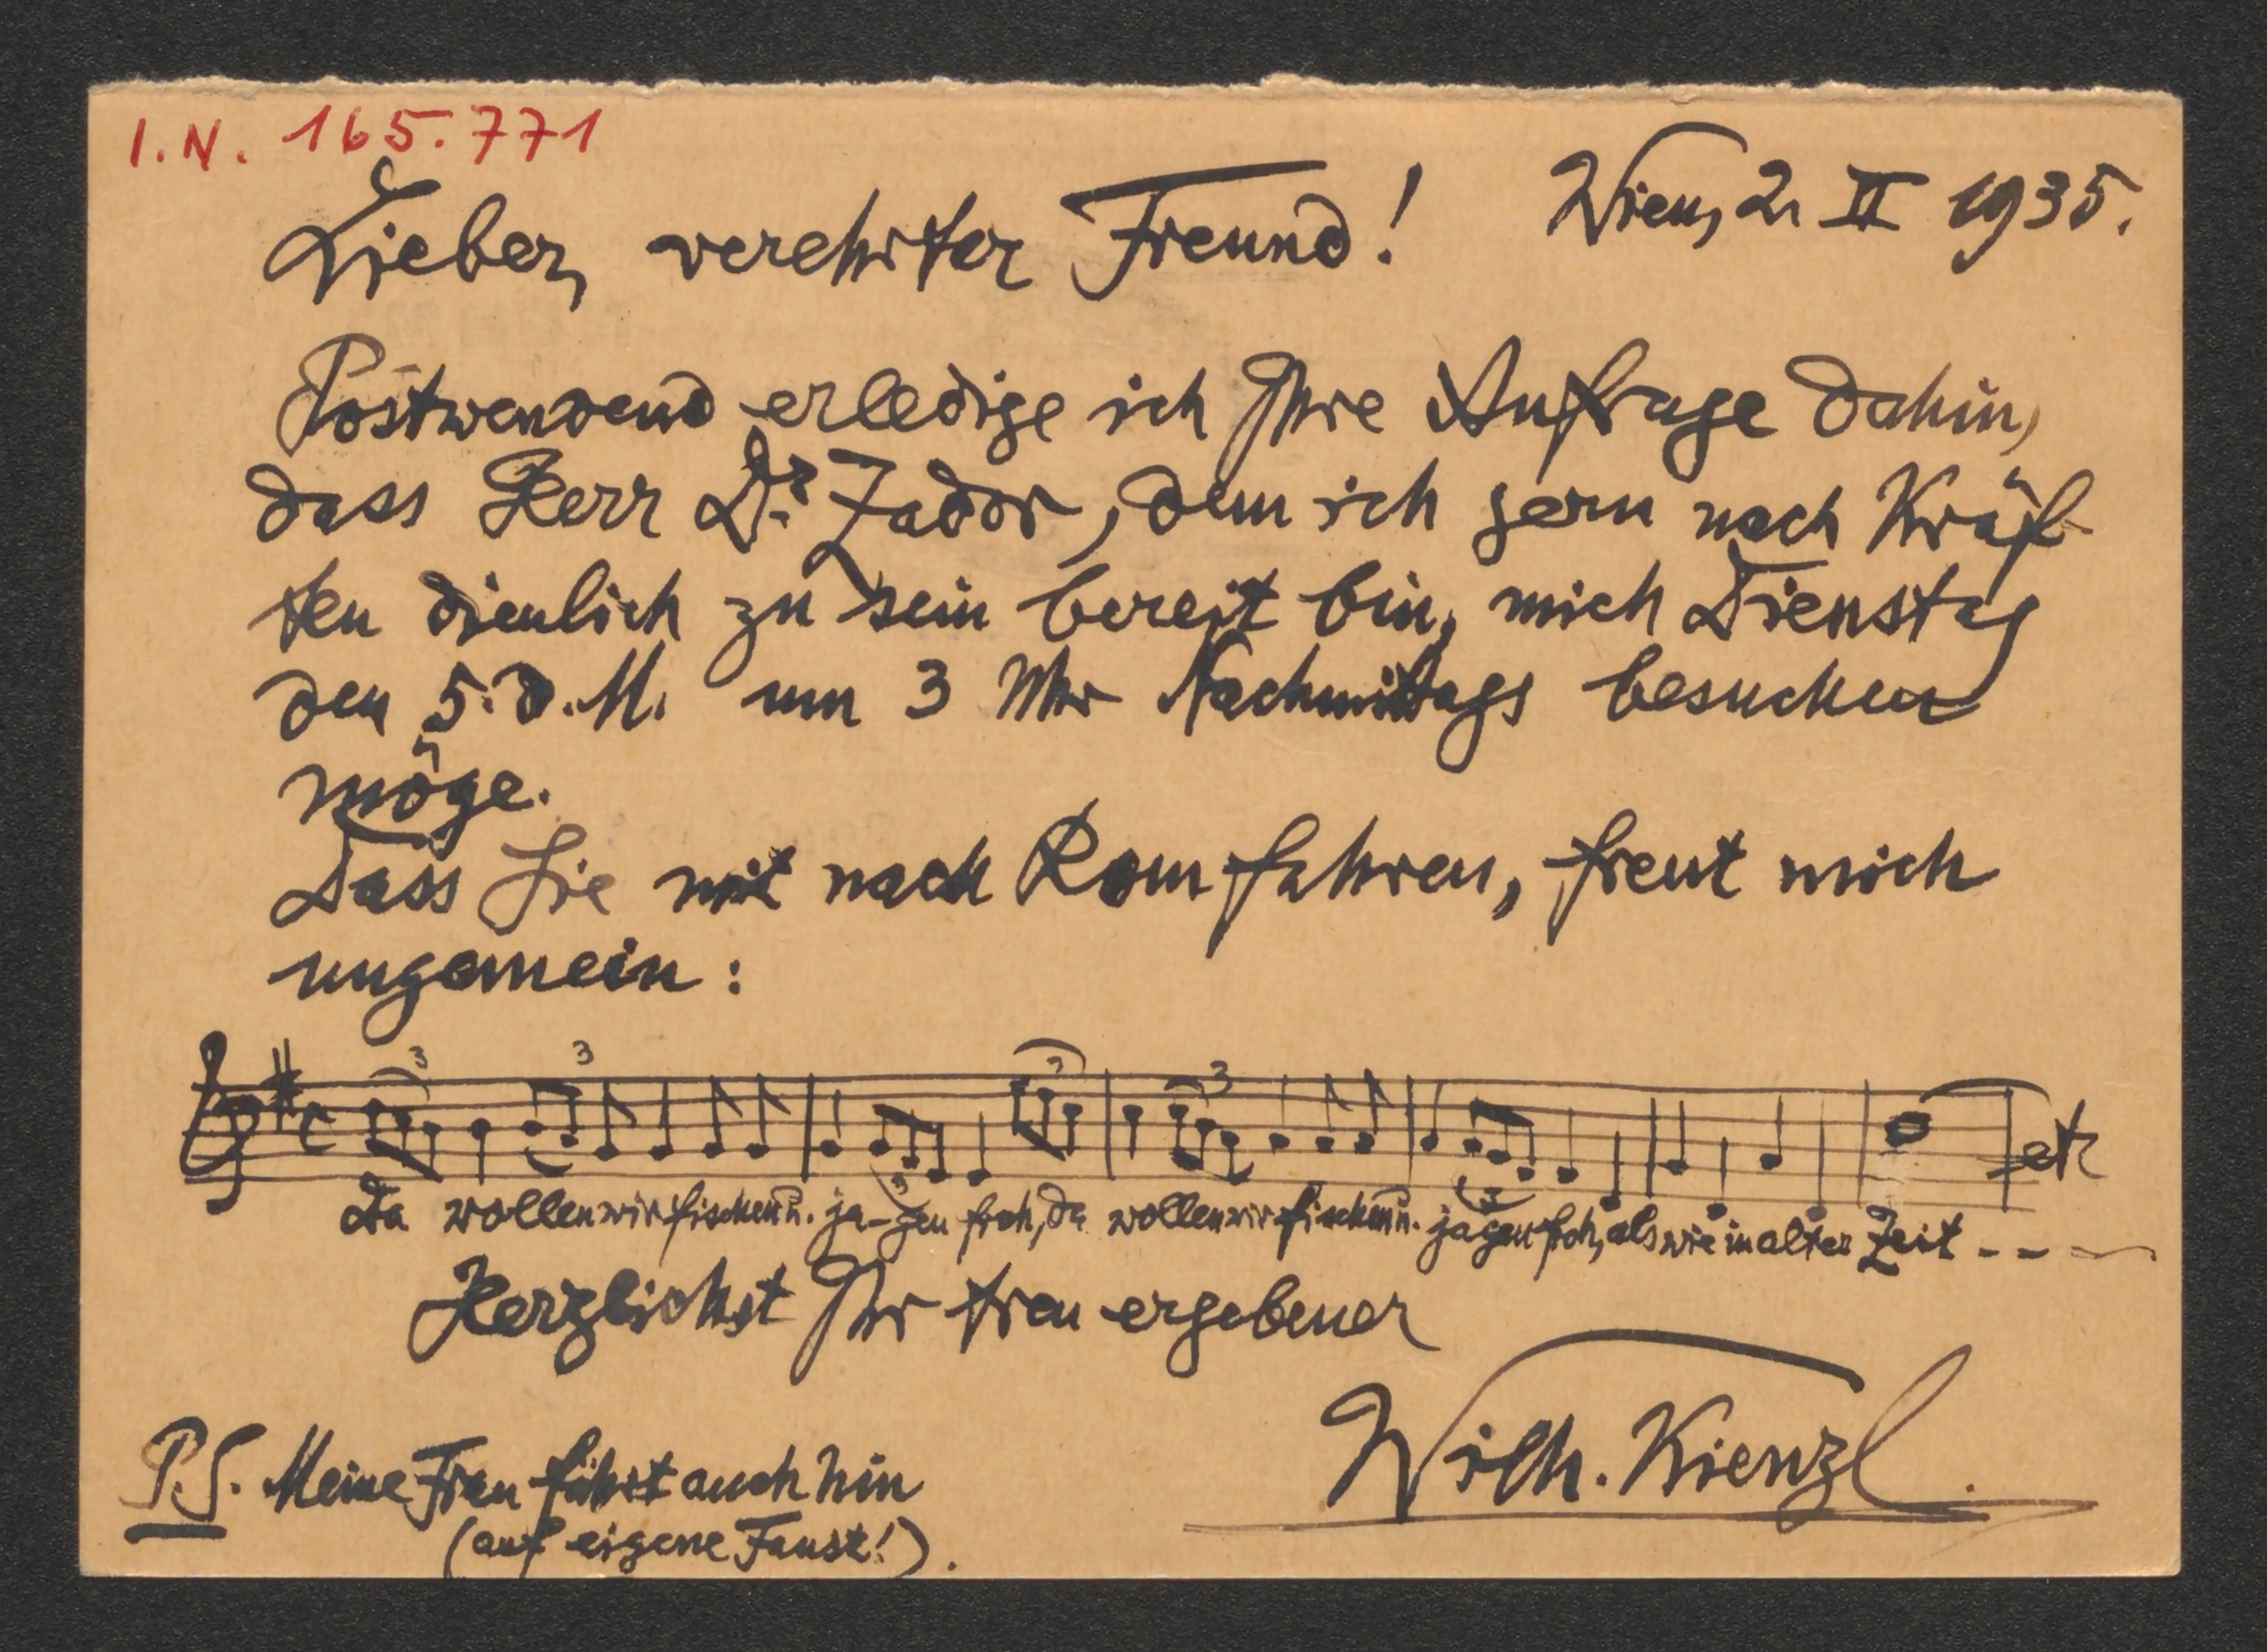 I.N. 165.771
Wien, 2. II 1935.
Lieber, verehrter Freund!
Postwendend erledige ich Ihre Anfrage dahin,
dass Herr Dr. Zador, dem ich gern nach Kräf-
ten dienlich zu sein bereit bin, mich Dienstag
den 5. d. M. um 3 Uhr Nachmittags besuchen
möge.
Dass Sie mit nach Rom fahren, freut mich
ungemein:
3 3 3 3 etc
Da wollen wir fischen u. ja-gen froh, da wollen wir fischen u. jagen froh, als wie in alter Zeit - - -
Herzlichst Ihr treu ergebener
Wilh. Kienzl.
P.S. Meine Frau fährt auch hin
(auf eigene Faust!).